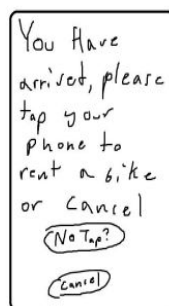 You Have
arrived, please
tap your
phone to
rent a bike
or Cancel
No Tap?
Cancel